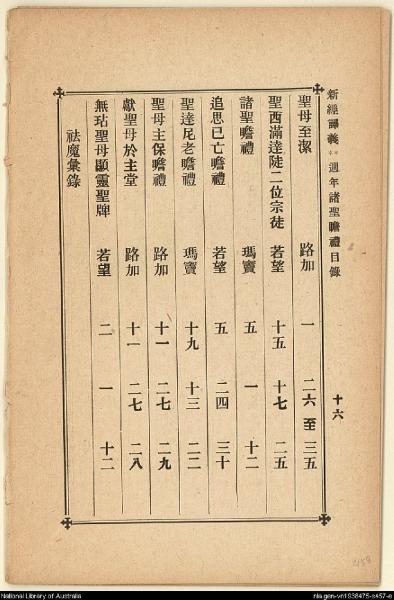 新經譯義 週年諸聖瞻禮目錄 十六
聖母至潔 路加 一 二六 至 三五
聖西滿達陡二位宗徒 若望 十五 十七 二五
諸聖瞻禮 瑪竇 五 一 十二
追思已亡瞻禮 若望 五 二四 三十
聖達尼老瞻禮 瑪竇 十九 十三 二二
聖母主保瞻禮 路加 十一 二七 二九
獻聖母於主堂 路加 十一 二七 二八
無玷聖母顯靈聖牌 若望 二 一 十二
祛魔彙錄
National Library of Australia
nla.gen-vn1938475-s457-e